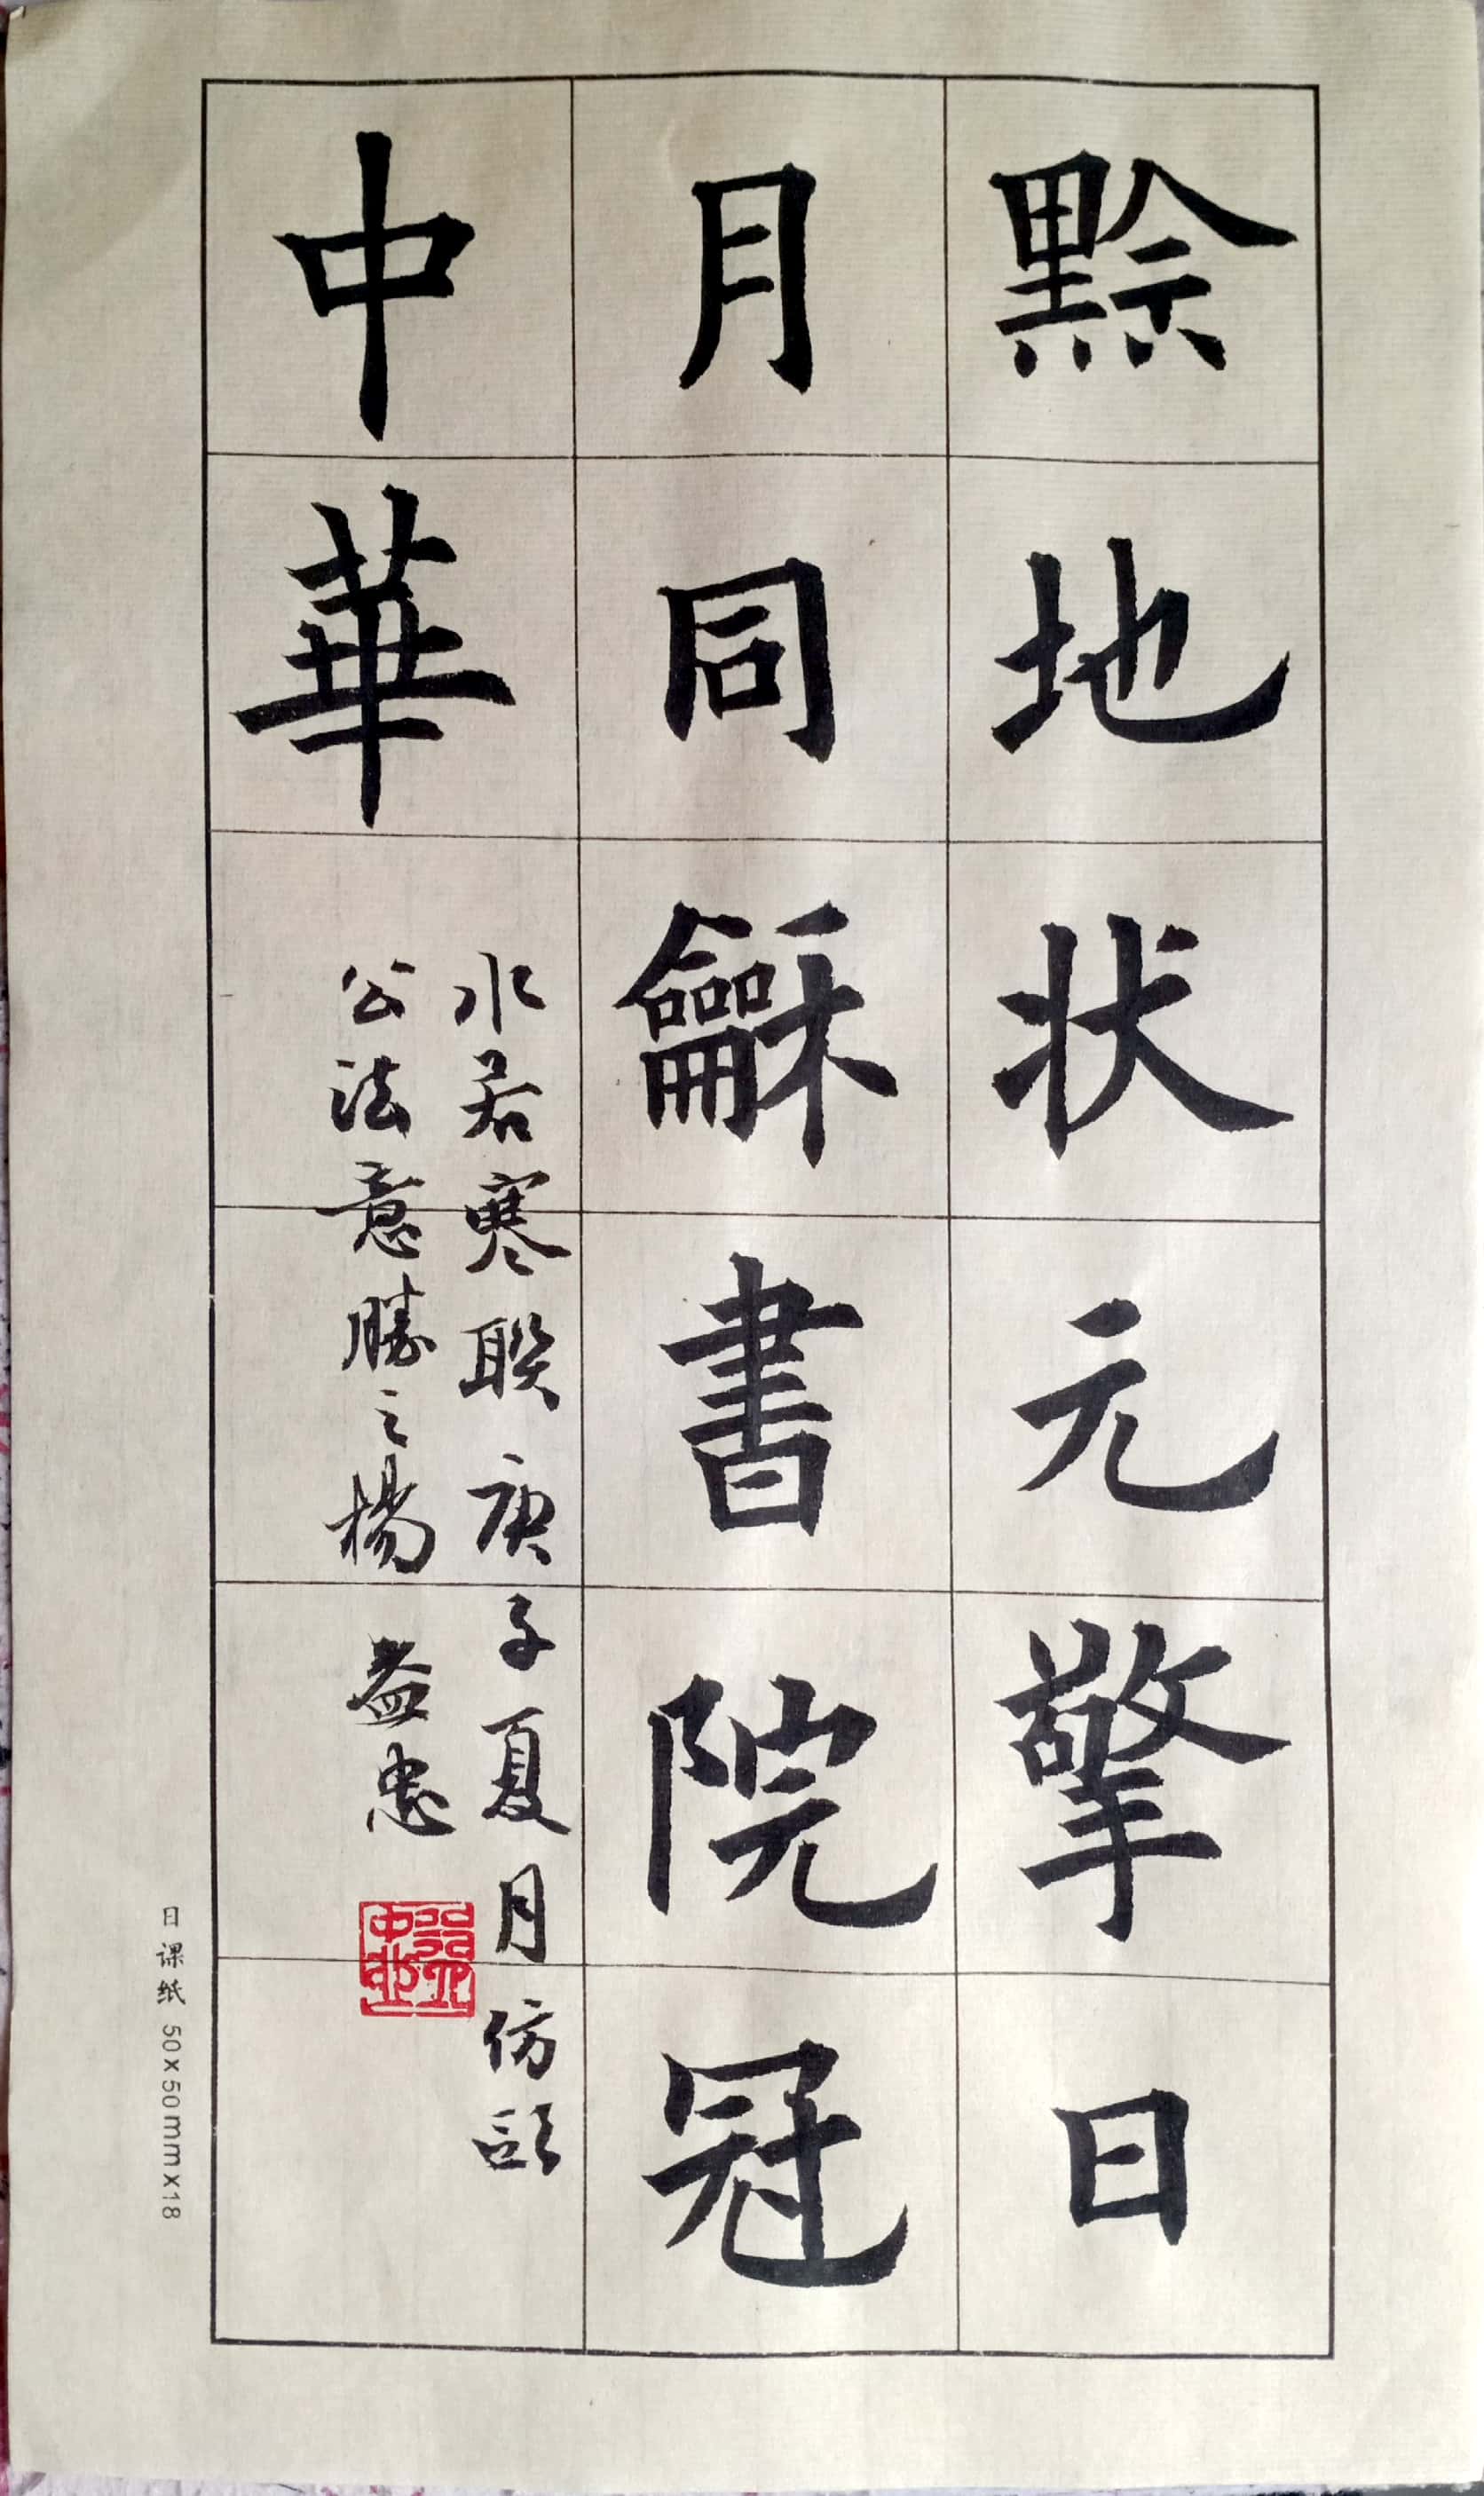 黔地状元擎日
月同龢書院冠
中華
水若寒联庚子夏月仿欧
公法意勝之楊益忠
日课纸 50×50mm×18